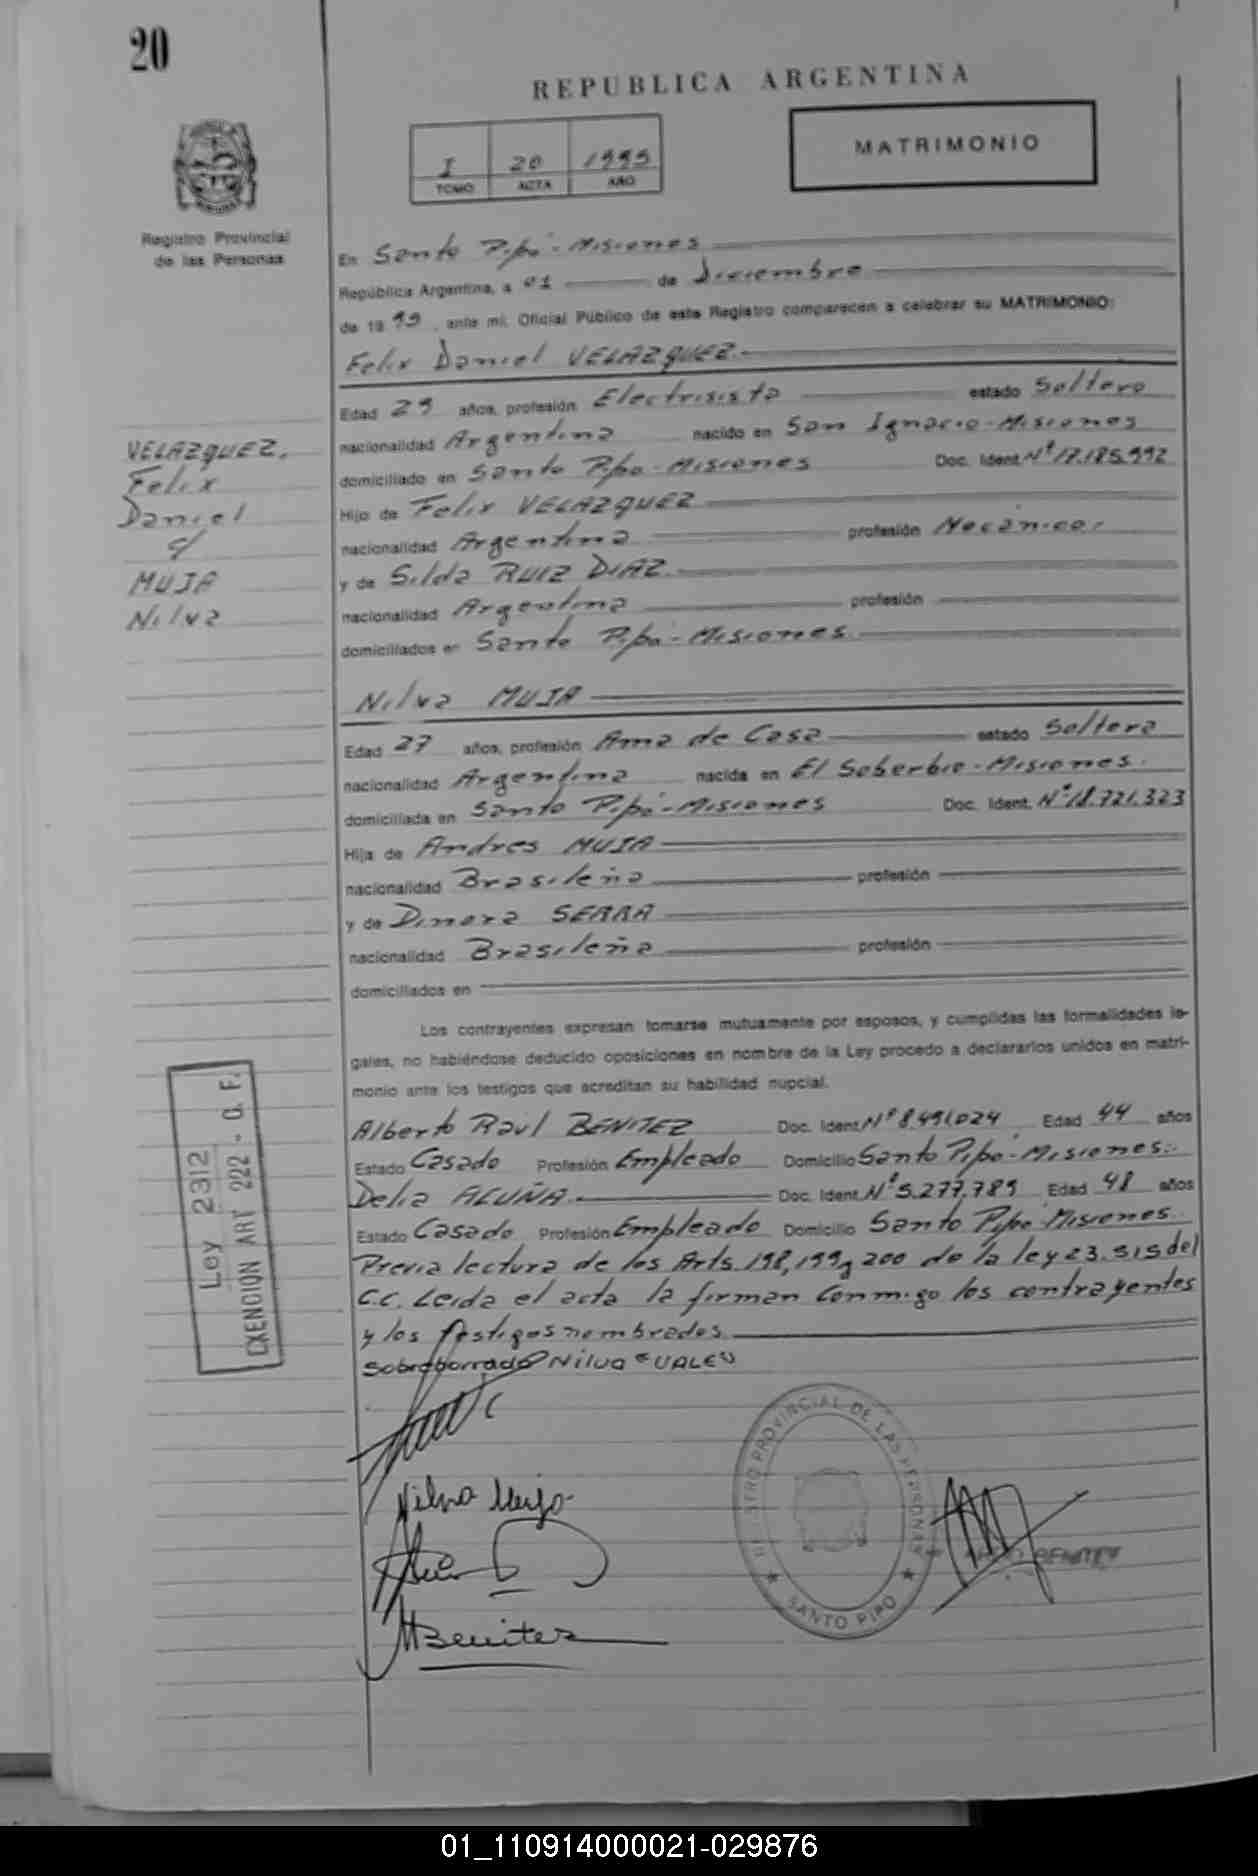 20
REPUBLICA ARGENTINA
I 20 1995
TOMO ACTA AÑO
MATRIMONIO
Registro Provincial
de las Personas
En Santo Pipó - Misiones
República Argentina, a 01 de Diciembre
de 19 95, ante mí, Oficial Público de este Registro comparecen a celebrar su MATRIMONIO:
Felix Daniel VELAZQUEZ.-
Edad 29 años, profesión Electrisista estado Soltero
nacionalidad Argentina nacido en San Ignacio - Misiones
domiciliado en Santo Pipó - Misiones Doc. Ident. Nº 17.185.992
Hijo de Felix VELAZQUEZ
nacionalidad Argentina profesión Mecánico.
y de Silda RUIZ DIAZ.
nacionalidad Argentina profesión
domiciliados en Santo Pipó - Misiones.
VELAZQUEZ.
Felix
Daniel
c/
MUJA
Nilva
Nilva MUJA
Edad 27 años, profesión Ama de Casa estado Soltera
nacionalidad Argentina nacida en El Soberbio - Misiones.
domiciliada en Santo Pipó - Misiones Doc. Ident. Nº 18.721.323
Hija de Andres MUJA
nacionalidad Brasileña profesión
y de Dinora SERRA
nacionalidad Brasileña profesión
domiciliados en
Los contrayentes expresan tomarse mutuamente por esposos, y cumplidas las formalidades le-
gales, no habiéndose deducido oposiciones en nombre de la Ley procedo a declararlos unidos en matri-
monio ante los testigos que acreditan su habilidad nupcial.
Alberto Raul BENITEZ Doc. Ident. Nº 8.491.024 Edad 44 años
Estado Casado Profesión Empleado Domicilio Santo Pipó - Misiones.-
Delia ACUÑA. Doc. Ident. Nº 5.277.789 Edad 48 años
Estado Casado Profesión Empleado Domicilio Santo Pipó Misiones.
Previa lectura de los Arts. 198, 199 y 200 de la ley 23.515 del
C.C. Leida el acta la firman conmigo los contrayentes
y los testigos nombrados.
Sobreborrado Nilva "VALE"
Ley 2312
EXENCION ART 222 - O. F.
Nilva Muja
Benitez
REGISTRO PROVINCIAL DE LAS PERSONAS
SANTO PIPO
BENITEZ
01_110914000021-029876